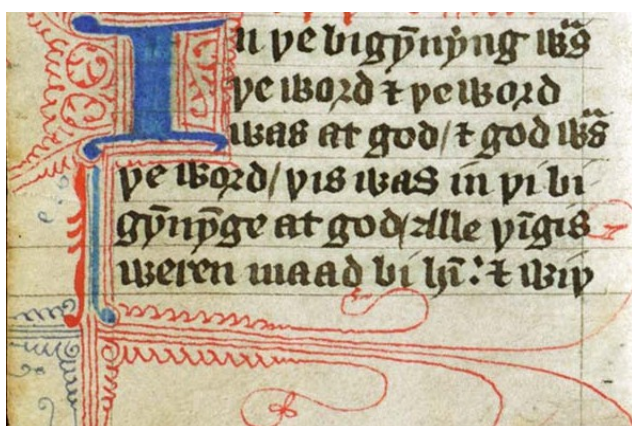 In þe bigyñyng wͣs
þe word ⁊ þe word
was at god/ ⁊ god wͣs
þe word/ þis was in þi bi
gyñyñge at god/ Alle þīgis
weren maad bi hī: ⁊ wiþ